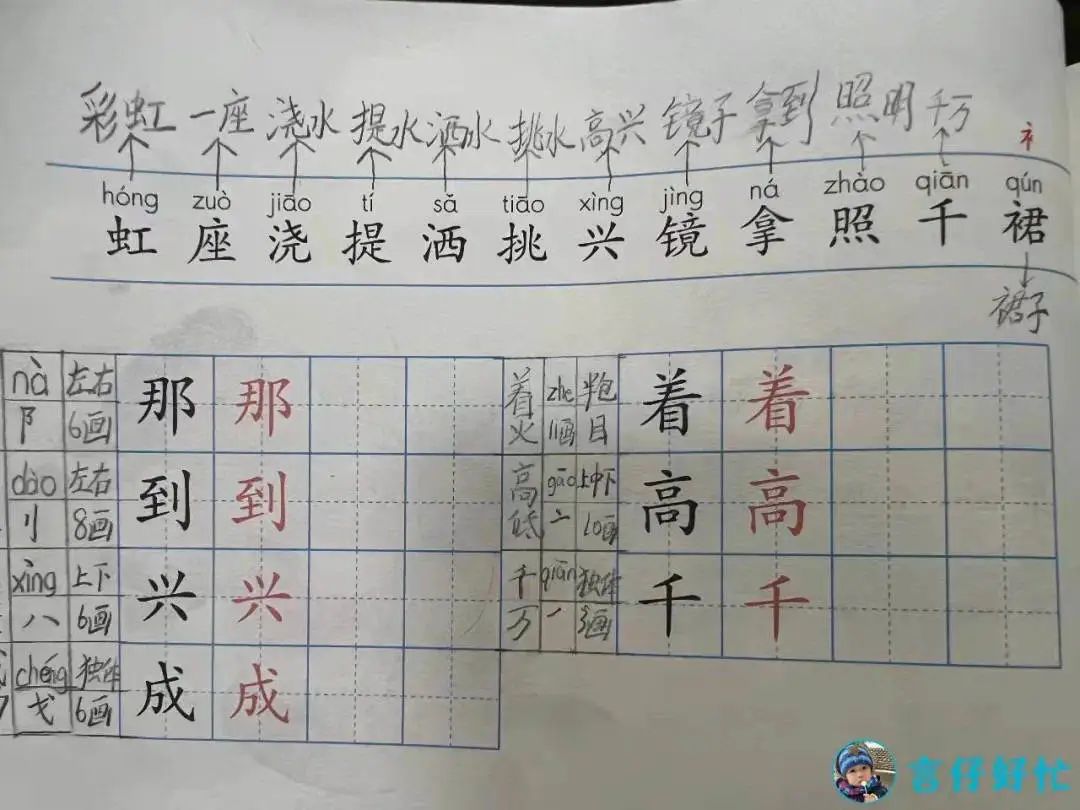 彩虹 一座 浇水 提水 洒水 挑水 高兴 镜子 拿到 照明 千万
衤
hóng zuò jiāo tí sǎ tiāo xìng jìng ná zhào qiān qún
虹 座 浇 提 洒 挑 兴 镜 拿 照 千 裙
裙子
nà 左右 那 那
阝 6画
着火 zhe 半包 着 着
11画 目
dào 左右 到 到
刂 8画
高低 gāo 上中下 高 高
亠 10画
xìng 上下 兴 兴
八 6画
千万 qiān 独体 千 千
一 3画
chéng 独体 成 成
戈 6画
言仔好忙